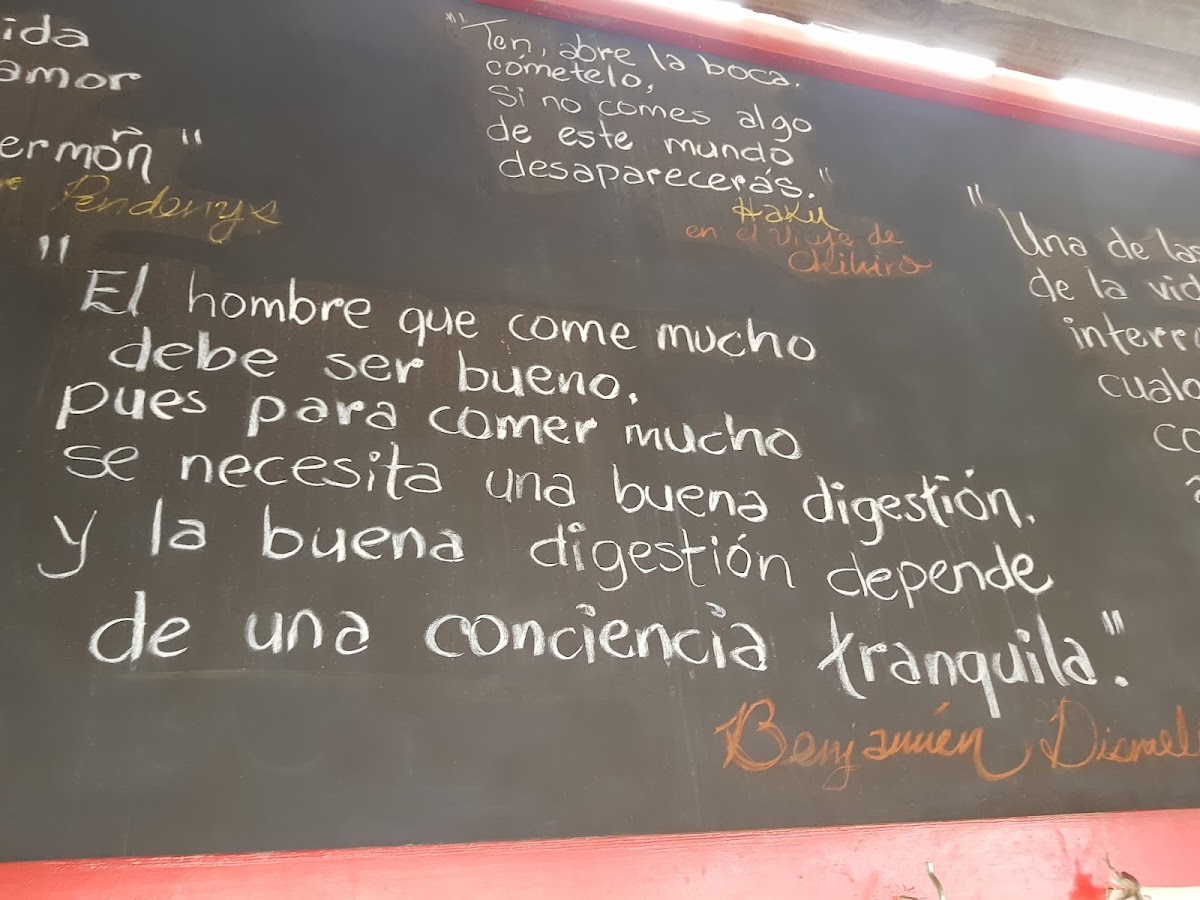 ida
amor
ermóñ"
Pendenys
"Ten, abre la boca.
cómetelo,
Si no comes algo
de este mundo
desaparecerás."
Haku
en el viaje de
Chihiro
"El hombre que come mucho
debe ser bueno,
pues para comer mucho
se necesita una buena digestión,
y la buena digestión depende
de una conciencia tranquila".
Benjamín Disraeli
"Una de las
de la vid
interr
cualq
co
a